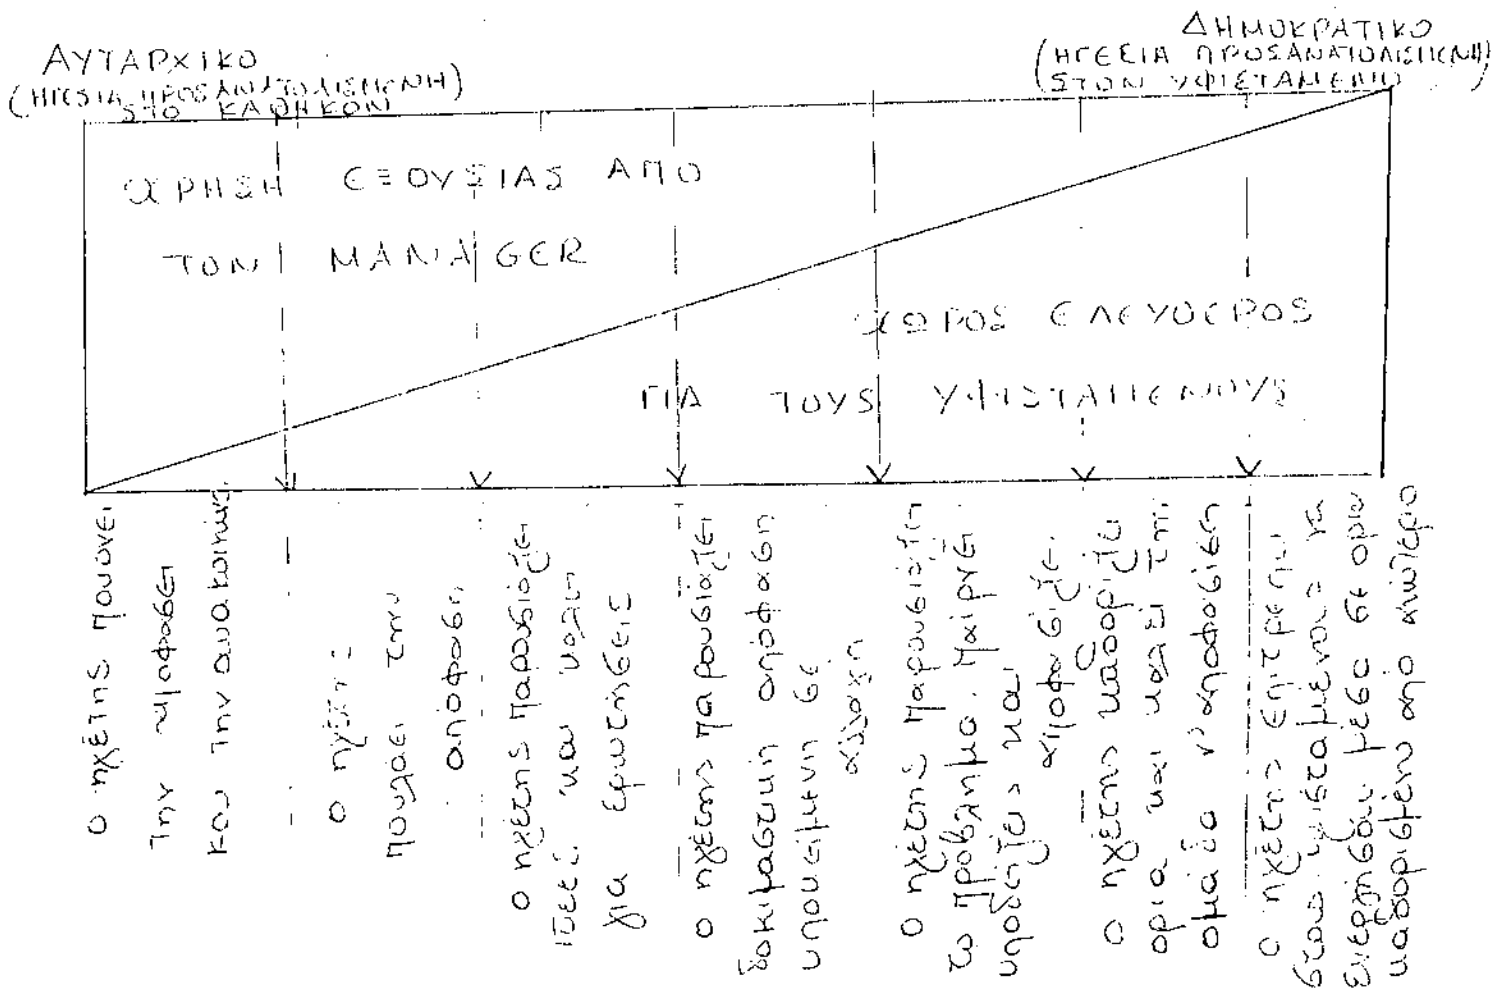 ΑΥΤΑΡΧΙΚΟ
(ΗΓΕΣΙΑ ΠΡΟΣΑΝΑΤΟΛΙΣΜΕΝΗ)
ΣΤΟ ΚΑΘΗΚΟΝ
ΔΗΜΟΚΡΑΤΙΚΟ
(ΗΓΕΣΙΑ ΠΡΟΣΑΝΑΤΟΛΙΣΜΕΝΗ)
ΣΤΟΝ ΥΦΙΣΤΑΜΕΝΟ
ΧΡΗΣΗ ΕΞΟΥΣΙΑΣ ΑΠΟ
ΤΟΝ MANAGER
ΧΩΡΟΣ ΕΛΕΥΘΕΡΟΣ
ΓΙΑ ΤΟΥΣ ΥΦΙΣΤΑΜΕΝΟΥΣ
Ο ηγέτης παίρνει
την απόφαση
και την ανακοινώνει
Ο ηγέτης
πουλάει την
απόφαση
Ο ηγέτης παρουσιάζει
ιδέες και καλεί
για ερωτήσεις
Ο ηγέτης παρουσιάζει
δοκιμαστική απόφαση
υποκείμενη σε
αλλαγή
Ο ηγέτης παρουσιάζει
το πρόβλημα. Παίρνει
υποδείξεις και
αποφασίζει
Ο ηγέτης καθορίζει
όρια και καλεί την
ομάδα ν' αποφασίσει
Ο ηγέτης επιτρέπει
στους υφισταμένους να
ενεργήσουν μέσα σε όρια
καθορισμένα από ανώτερο